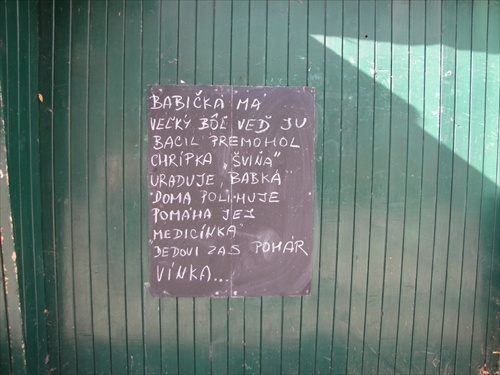 BABIČKA MÁ
VEĽKÝ BÔĽ VEĎ JU
BACIL PREMOHOL
CHRÍPKA „SVIŇA"
URADUJE „BABKA"
DOMA POLIHUJE
POMÁHA JEJ
„MEDICÍNKA"
DEDOVI ZAS POHÁR
VÍNKA...